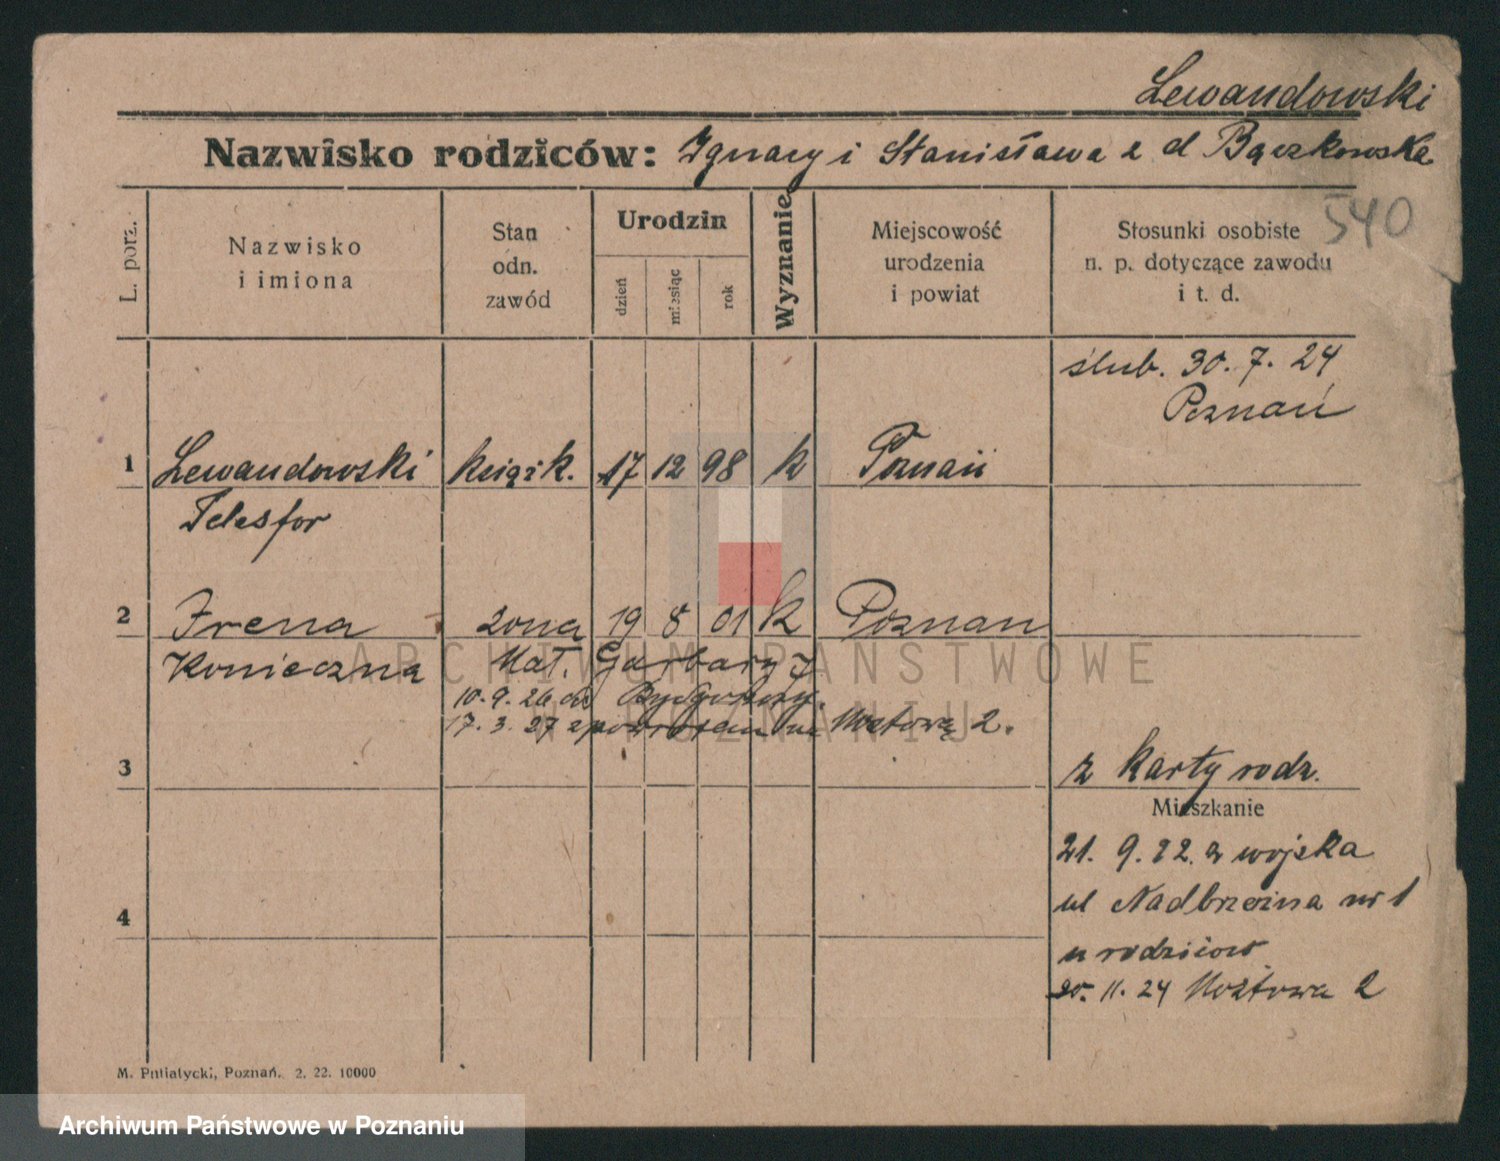 Lewandowski
Nazwisko rodziców: Ignacy i Stanisława z d Bączkowska
540
L. porz.
Nazwisko i imiona
Stan odn. zawód
Urodzin
dzień
miesiąc
rok
Wyznanie
Miejscowość urodzenia i powiat
Stosunki osobiste n. p. dotyczące zawodu i t. d.
ślub. 30. 7. 24
Poznań
1 Lewandowski książk. 17 12 98 k Poznań
Telesfor
2 Irena żona 19 8 01 k Poznan
Konieczna Mał. Garbary 7
10. 9. 26 do Bydgoszcz.
17. 3. 27 z powrotem na Mostową 2.
3 z karty rodz.
Mieszkanie
21. 9. 22. z wojska
ul Nadbrzeżna nr 1
4
u rodziców
20. 11. 24 Mostowa 2
M. Putiatycki, Poznań. 2. 22. 10000
ARCHIWUM PAŃSTWOWE
W POZNANIU
Archiwum Państwowe w Poznaniu